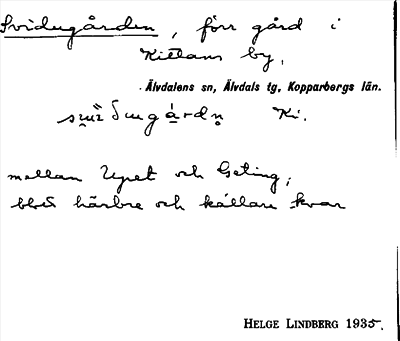 Svidugården, förr gård i
Kittans by,
Älvdalens sn, Älvdals tg, Kopparbergs län.
Ki.
mellan Upet och Geting;
blott härbre och källare kvar
HELGE LINDBERG 1935.